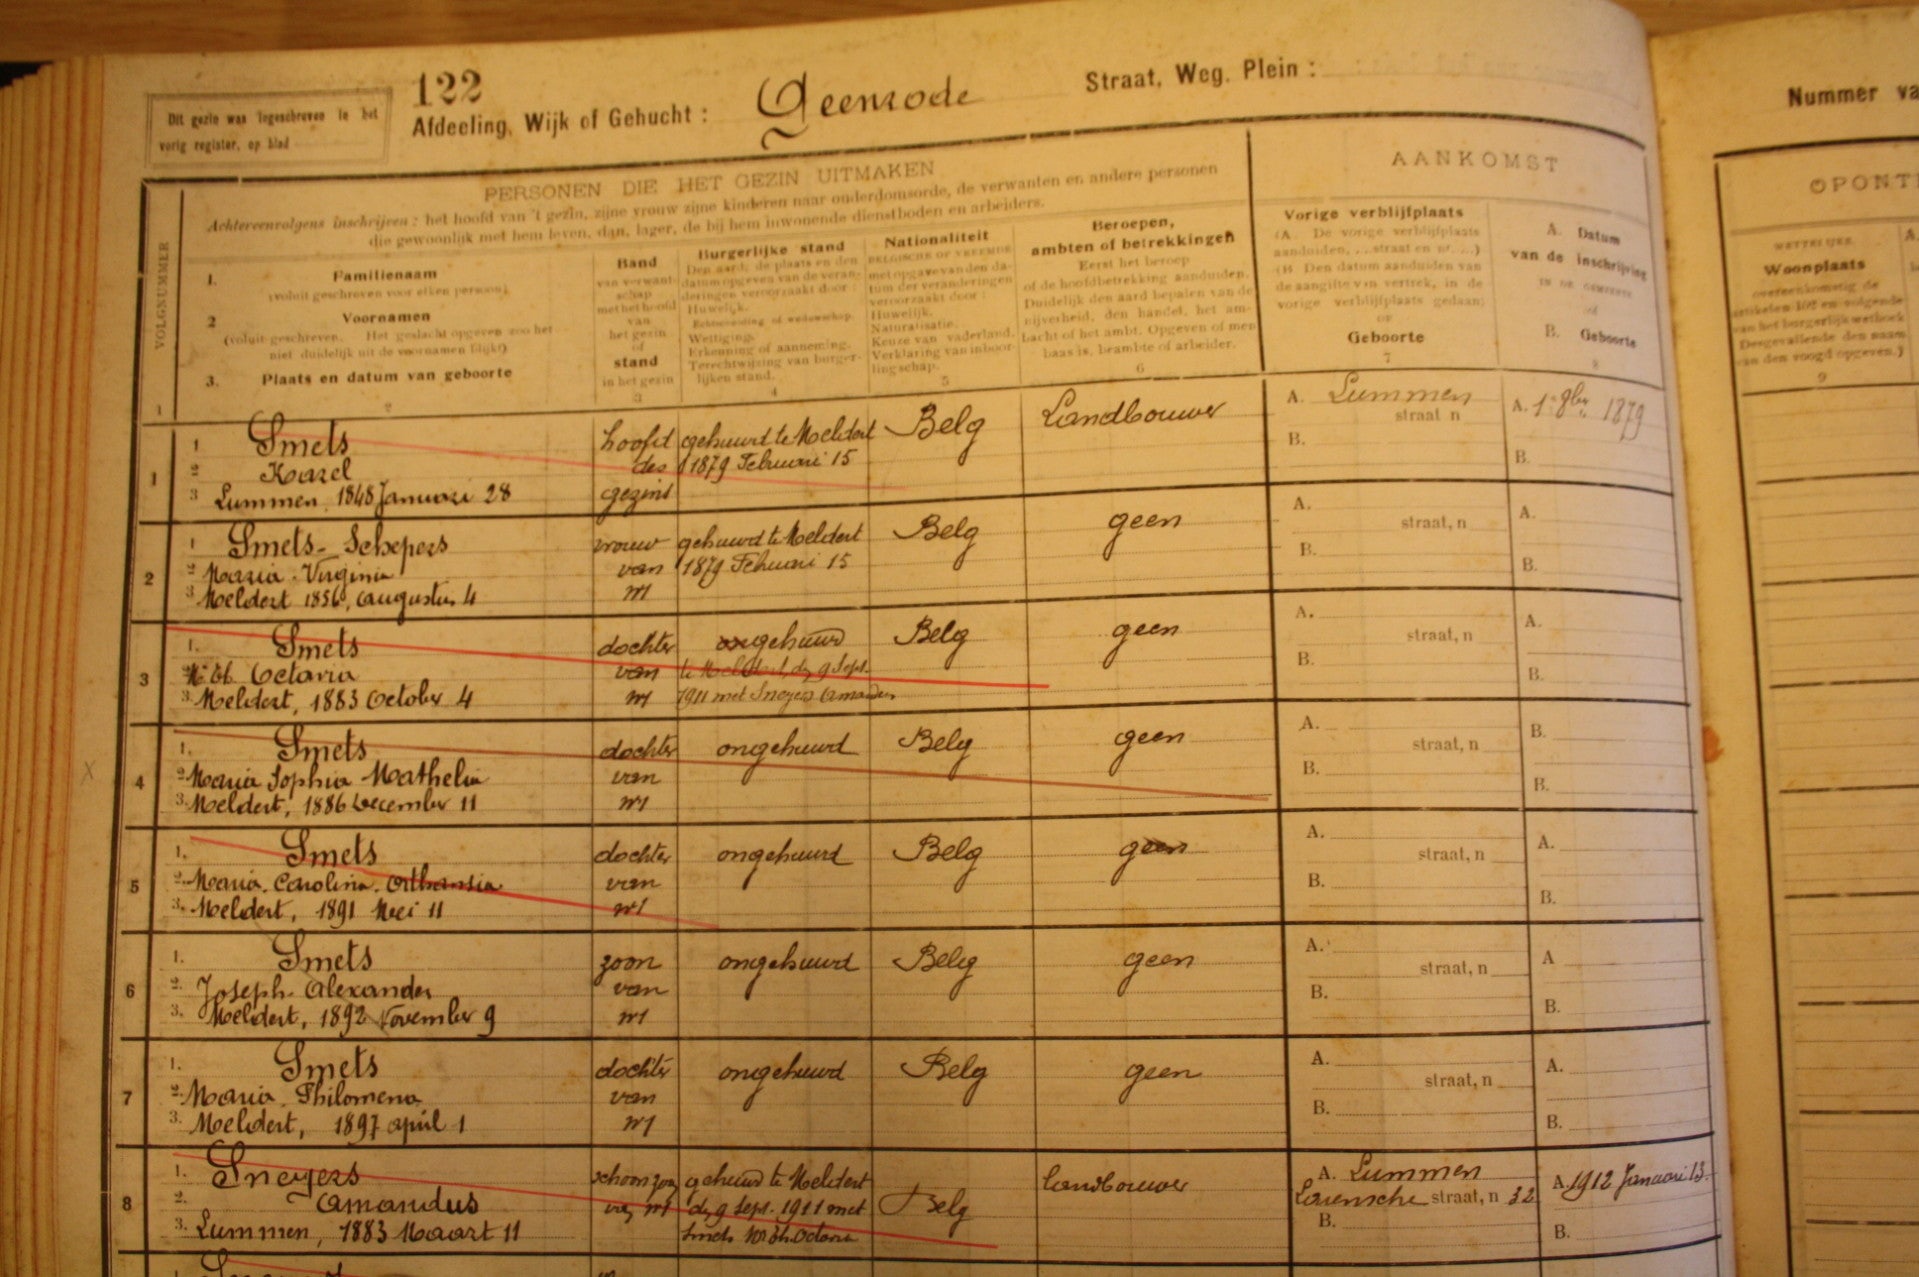 Dit gezin was ingeschreven in het
vorig register, op blad
122
Afdeeling, Wijk of Gehucht :
Geenrode
Straat, Weg, Plein :
Nummer va
PERSONEN DIE HET GEZIN UITMAKEN
Achtereenvolgens inschrijven : het hoofd van 't gezin, zijne vrouw zijne kinderen naar ouderdomsorde, de verwanten en andere personen
die gewoonlijk met hem leven, dan, lager, de bij hem inwonende dienstboden en arbeiders.
AANKOMST
OPONT
VOLGNUMMER
1
1. Familienaam
(voluit geschreven voor elken persoon)
2 Voornamen
(voluit geschreven. Het geslacht opgeven zoo het
niet duidelijk uit de voornamen blijkt)
3. Plaats en datum van geboorte
2
Band
van verwant-
schap
met het hoofd
van
het gezin
of
stand
in het gezin
3
Burgerlijke stand
Den aard, de plaats en den
datum opgeven van de veran-
deringen veroorzaakt door :
Huwelijk.
Echtscheiding of weduwschap.
Wettiging.
Erkenning of aanneming.
Terechtwijzing van burger-
lijken stand.
4
Nationaliteit
BELGISCHE OF VREEMDE
met opgave van den da-
tum der veranderingen
veroorzaakt door :
Huwelijk.
Naturalisatie.
Keuze van vaderland.
Verklaring van inboor-
lingschap.
5
Beroepen,
ambten of betrekkingen
Eerst het beroep
of de hoofdbetrekking aanduiden.
Duidelijk den aard bepalen van de
nijverheid, den handel, het am-
bacht of het ambt. Opgeven of men
baas is, beambte of arbeider.
6
Vorige verblijfplaats
(A. De vorige verblijfplaats
aanduiden, ... straat en nr ....)
(B Den datum aanduiden van
de aangifte van vertrek, in de
vorige verblijfplaats gedaan)
OF
Geboorte
7
A. Datum
van de inschrijving
IN DE GEMEENTE
of
B. Geboorte
8
WETTELIJKE
Woonplaats
overeenkomstig de
artikelen 102 en volgende
van het burgerlijk wetboek
Desgevallende den naam
van den voogd opgeven.)
9
1
1 Smets
2 Karel
3 Lummen, 1848 Januari 28
hoofd
des
gezins
gehuwd te Meldert
1879 Februari 15
Belg
Landbouwer
A. Lummen
straat n
B.
A. 1 8ber 1879
B.
2
1 Smets-Schepers
2 Maria Virginia
3 Meldert 1856, augustus 4
vrouw
van
nr1
gehuwd te Meldert
1879 Februari 15
Belg
geen
A.
straat, n
B.
A.
B.
3
1. Smets
Octavia
3. Meldert, 1883 October 4
dochter
van
nr1
gehuwd
te Meldert, den 9 Sept.
1911 met Sneyers Amandus
Belg
geen
A.
straat, n
B.
A.
B.
X
4
1. Smets
2. Maria Sophia Mathelia
3. Meldert, 1886 December 11
dochter
van
nr1
ongehuwd
Belg
geen
A.
straat, n
B.
B.
B.
5
1. Smets
2. Maria Carolina Orthansia
3. Meldert, 1891 Mei 11
dochter
van
nr1
ongehuwd
Belg
geen
A.
straat, n
B.
A.
B.
6
1. Smets
2. Joseph Alexander
3. Meldert, 1892 November 9
zoon
van
nr1
ongehuwd
Belg
geen
A.
straat, n
B.
A
B.
7
1. Smets
2. Maria Philomena
3. Meldert, 1897 april 1
dochter
van
nr1
ongehuwd
Belg
geen
A.
straat, n
B.
A.
B.
8
1. Sneyers
2. Amandus
3. Lummen, 1883 Maart 11
schoonzoon
van nr1
gehuwd te Meldert
den 9 Sept. 1911 met
Smets
Belg
Landbouwer
A. Lummen
straat, n 32
B.
A. 1912 Januari 13
B.